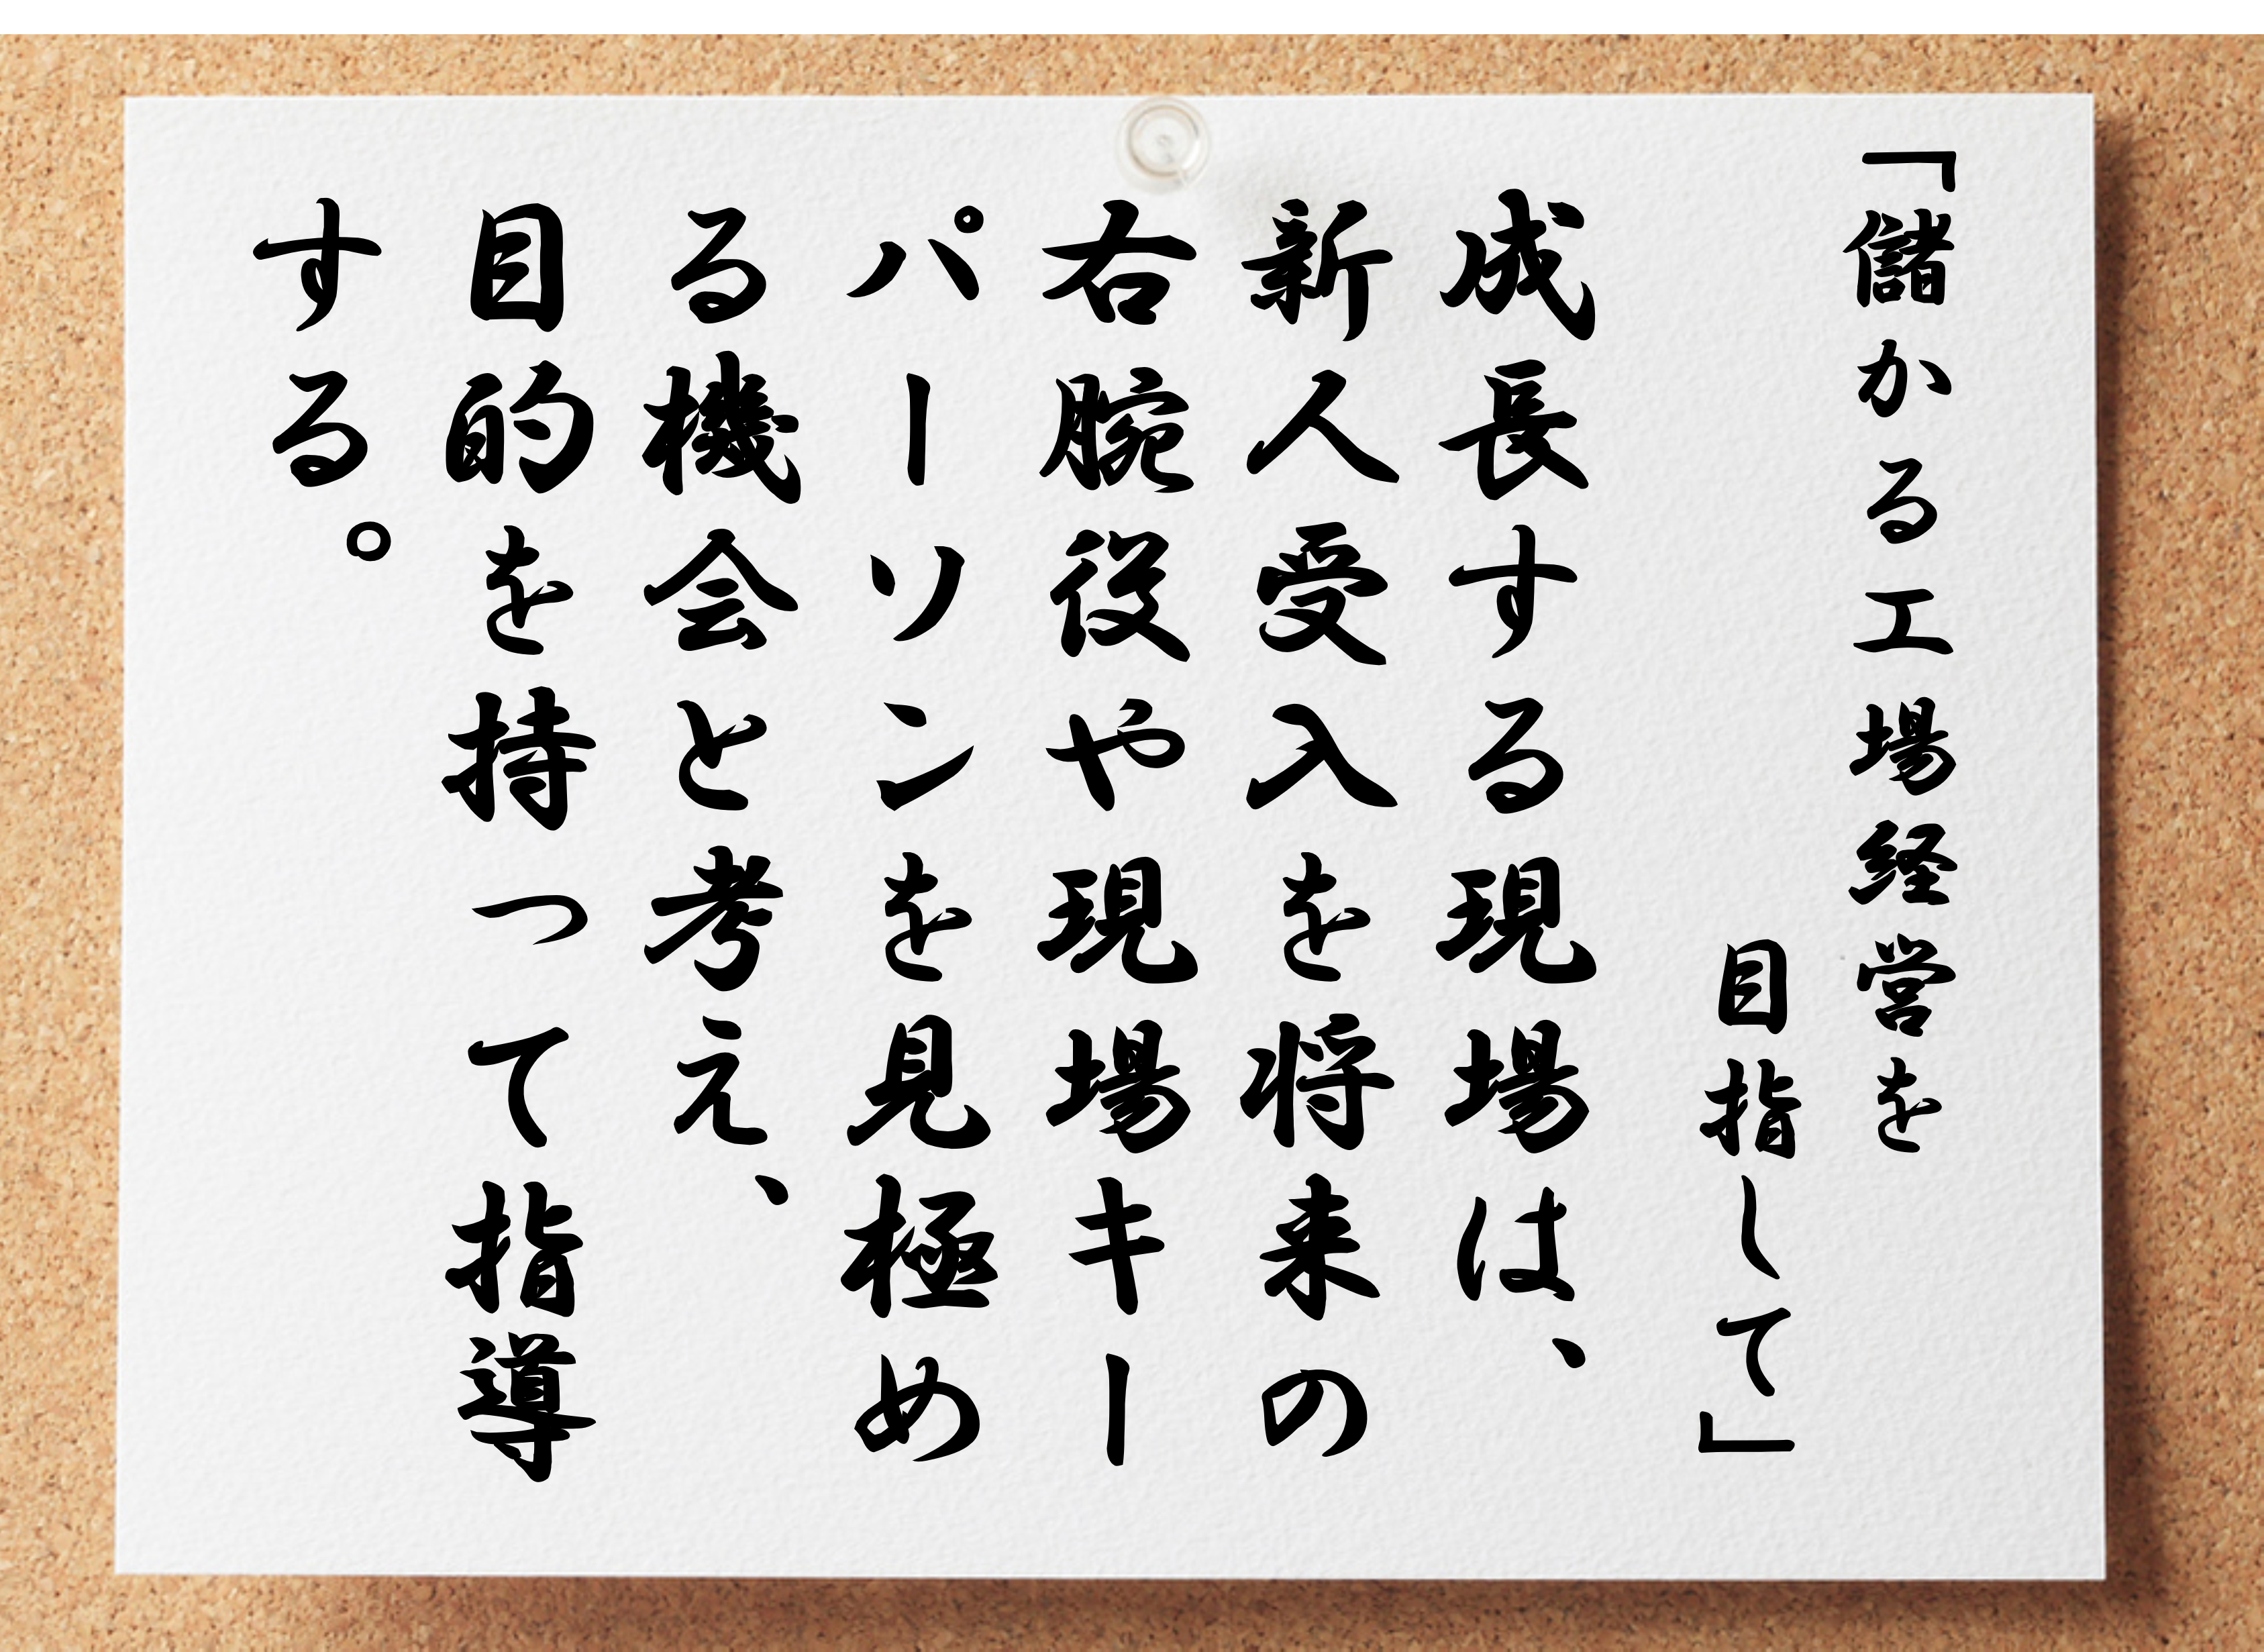 「儲かる工場経営を
目指して」
成長する現場は、
新人受入を将来の
右腕役や現場キー
パーソンを見極め
る機会と考え、
目的を持って指導
する。